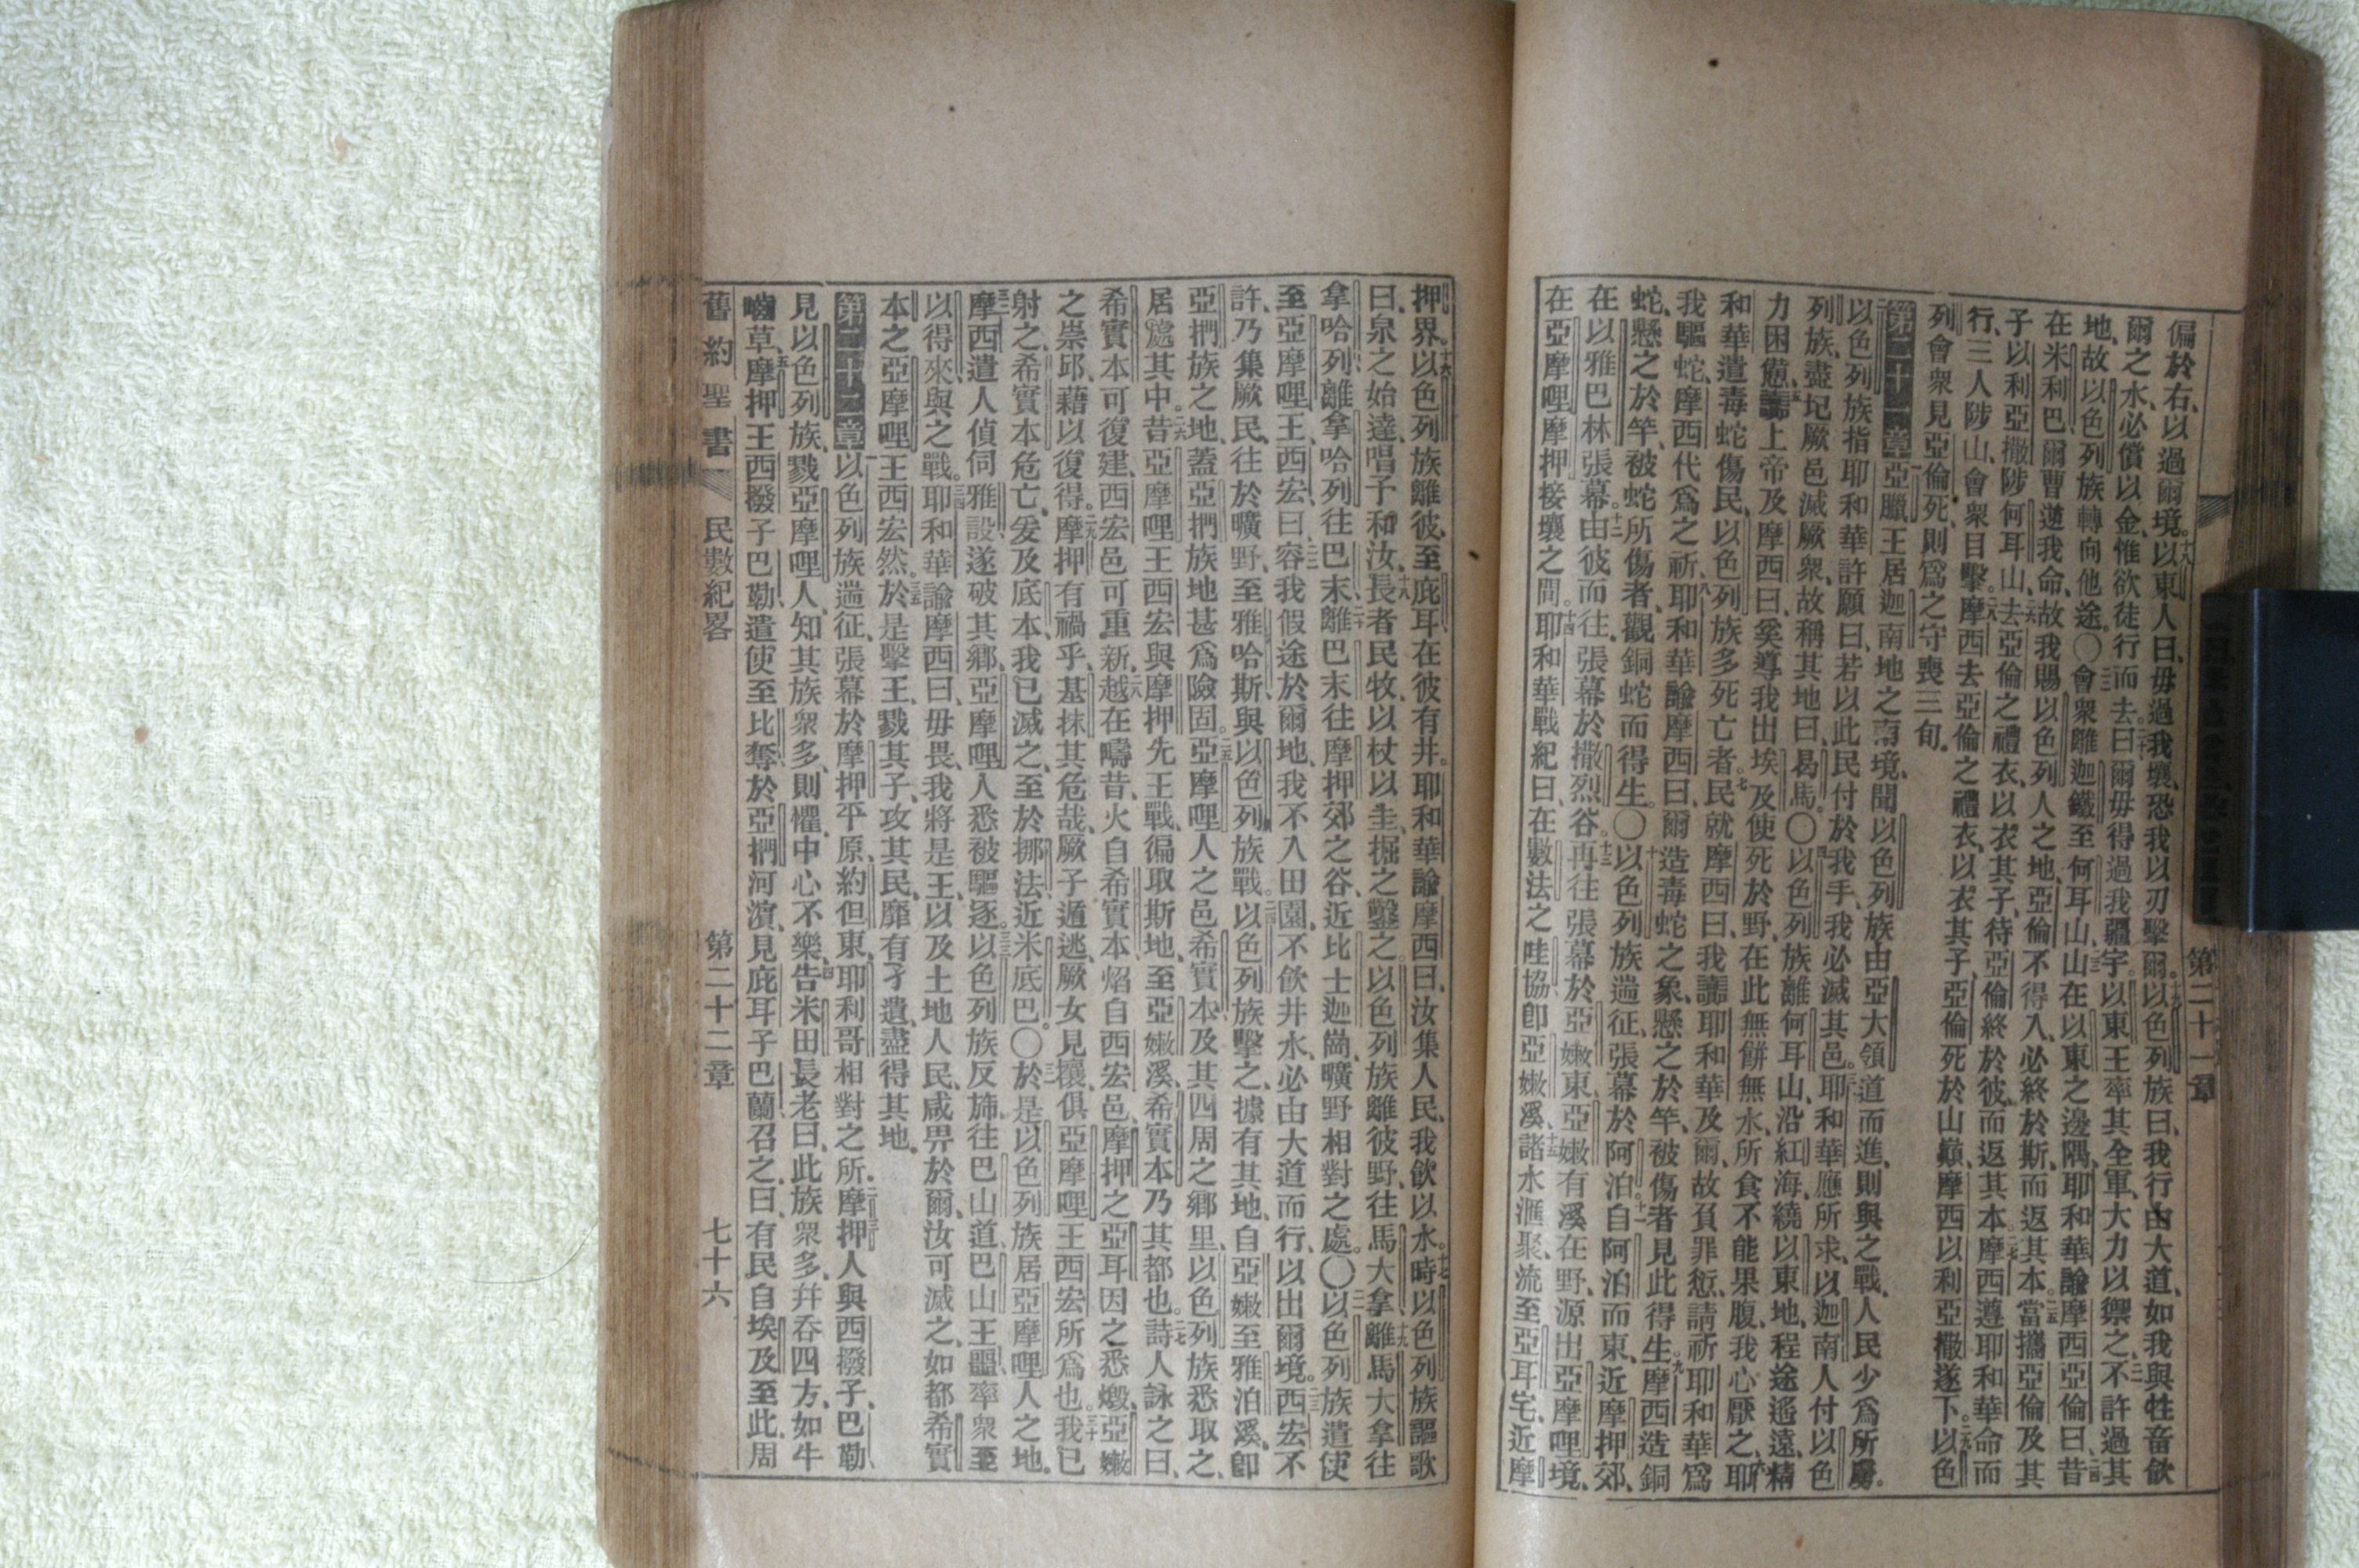 第二十一章
偏於右、以過爾境。十八以東人曰、毋過我壤、恐我以刃擊爾。十九以色列族曰、我行由大道、如我與牲畜飲
爾之水、必償以金、惟欲徒行而去。二十曰、爾毋得過我疆宇。以東王率其全軍、大力以禦之、二一不許過其
地、故以色列族轉向他途。〇二二會衆離迦鐵至何耳山、二三山在以東之邊隅、耶和華諭摩西亞倫曰、二四昔
在米利巴爾曹逆我命、故我賜以色列人之地、亞倫不得入、必終於斯、而返其本。二五當攜亞倫及其
子以利亞撒陟何耳山、二六去亞倫之禮衣、以衣其子、待亞倫終於彼、而返其本。二七摩西遵耶和華命而
行、三人陟山、會衆目擊。二八摩西去亞倫之禮衣、以衣其子、亞倫死於山巔、摩西以利亞撒遂下。二九以色
列會衆見亞倫死、則爲之守喪三旬。
第二十一章 一亞臘王居迦南地之南境、聞以色列族由亞大領道而進、則與之戰、人民少爲所虜。
二以色列族指耶和華許願曰、若以此民付於我手、我必滅其邑。三耶和華應所求、以迦南人付以色
列族、盡圮厥邑、滅厥衆、故稱其地曰曷馬。〇四以色列族離何耳山、沿紅海繞以東地、程途遙遠、精
力困憊、五讟上帝及摩西曰、奚導我出埃及使死於野、在此無餅無水、所食不能果腹、我心厭之、六耶
和華遣毒蛇傷民、以色列族多死亡者。七民就摩西曰、我讟耶和華及爾、故負罪愆、請祈耶和華爲
我驅蛇、摩西代爲之祈、八耶和華諭摩西曰、爾造毒蛇之象、懸之於竿、被傷者見此得生。九摩西造銅
蛇懸之於竿、被蛇所傷者、觀銅蛇而得生。〇十以色列族遄征、張幕於阿泊。十一自阿泊而東、近摩押郊、
在以雅巴林張幕。十二由彼而往、張幕於撒烈谷。十三再往張幕於亞嫩東、亞嫩有溪在野、源出亞摩哩境、
在亞摩哩摩押接壤之間。十四耶和華戰紀曰、在數法之哇協、卽亞嫩溪、十五諸水滙聚、流至亞耳宅、近摩
押界。十六以色列族離彼、至庇耳、在彼有井。耶和華諭摩西曰、汝集人民、我飲以水。十七時以色列族謳歌
曰、泉之始達、唱予和汝、十八長者民牧、以杖以圭、掘之鑿之。以色列族離彼野、往馬大拿、十九離馬大拿往
拿哈列、離拿哈列往巴末、二十離巴末往摩押郊之谷、近比士迦崗、曠野相對之處。〇二一以色列族遣使
至亞摩哩王西宏曰、二二容我假途於爾地、我不入田園、不飲井水、必由大道而行、以出爾境。二三西宏不
許、乃集厥民、往於曠野、至雅哈斯、與以色列族戰。二四以色列族擊之、據有其地、自亞嫩至雅泊溪、卽
亞捫族之地、蓋亞捫族地甚爲險固。二五亞摩哩人之邑希實本、及其四周之鄉里、以色列族悉取之、
居處其中。二六昔亞摩哩王西宏與摩押先王戰、徧取斯地、至亞嫩溪、希實本乃其都也。二七詩人詠之曰、
希實本可復建、西宏邑可重新、二八越在疇昔、火自希實本、焰自西宏邑、摩押之亞耳因之悉燬、亞嫩
之崇邱、藉以復得。二九摩押有禍乎、基抹其危哉、厥子遁逃、厥女見攘、俱亞摩哩王西宏所爲也。三十我已
射之、希實本危亡、爰及底本、我已滅之、至於挪法、近米底巴。〇三一於是以色列族居亞摩哩人之地、
三二摩西遣人偵伺雅設、遂破其鄉、亞摩哩人悉被驅逐。三三以色列族反旆往巴山道、巴山王噩率衆至
以得來、與之戰。三四耶和華諭摩西曰、毋畏、我將是王、以及土地人民、咸畀於爾、汝可滅之、如都希實
本之亞摩哩王西宏然。三五於是擊王、戮其子、攻其民、靡有孑遺、盡得其地。
第二十二章 一以色列族遄征、張幕於摩押平原、約但東、耶利哥相對之所、二三摩押人與西撥子巴勒、
見以色列族、戮亞摩哩人、知其族衆多、則懼、中心不樂、四告米田長老曰、此族衆多、幷吞四方、如牛
嚙草、五摩押王西撥子巴勒遣使至比奪、於亞捫河濱、見庇耳子巴蘭召之曰、有民自埃及至此、周
舊約聖書 民數紀畧 第二十二章 七十六